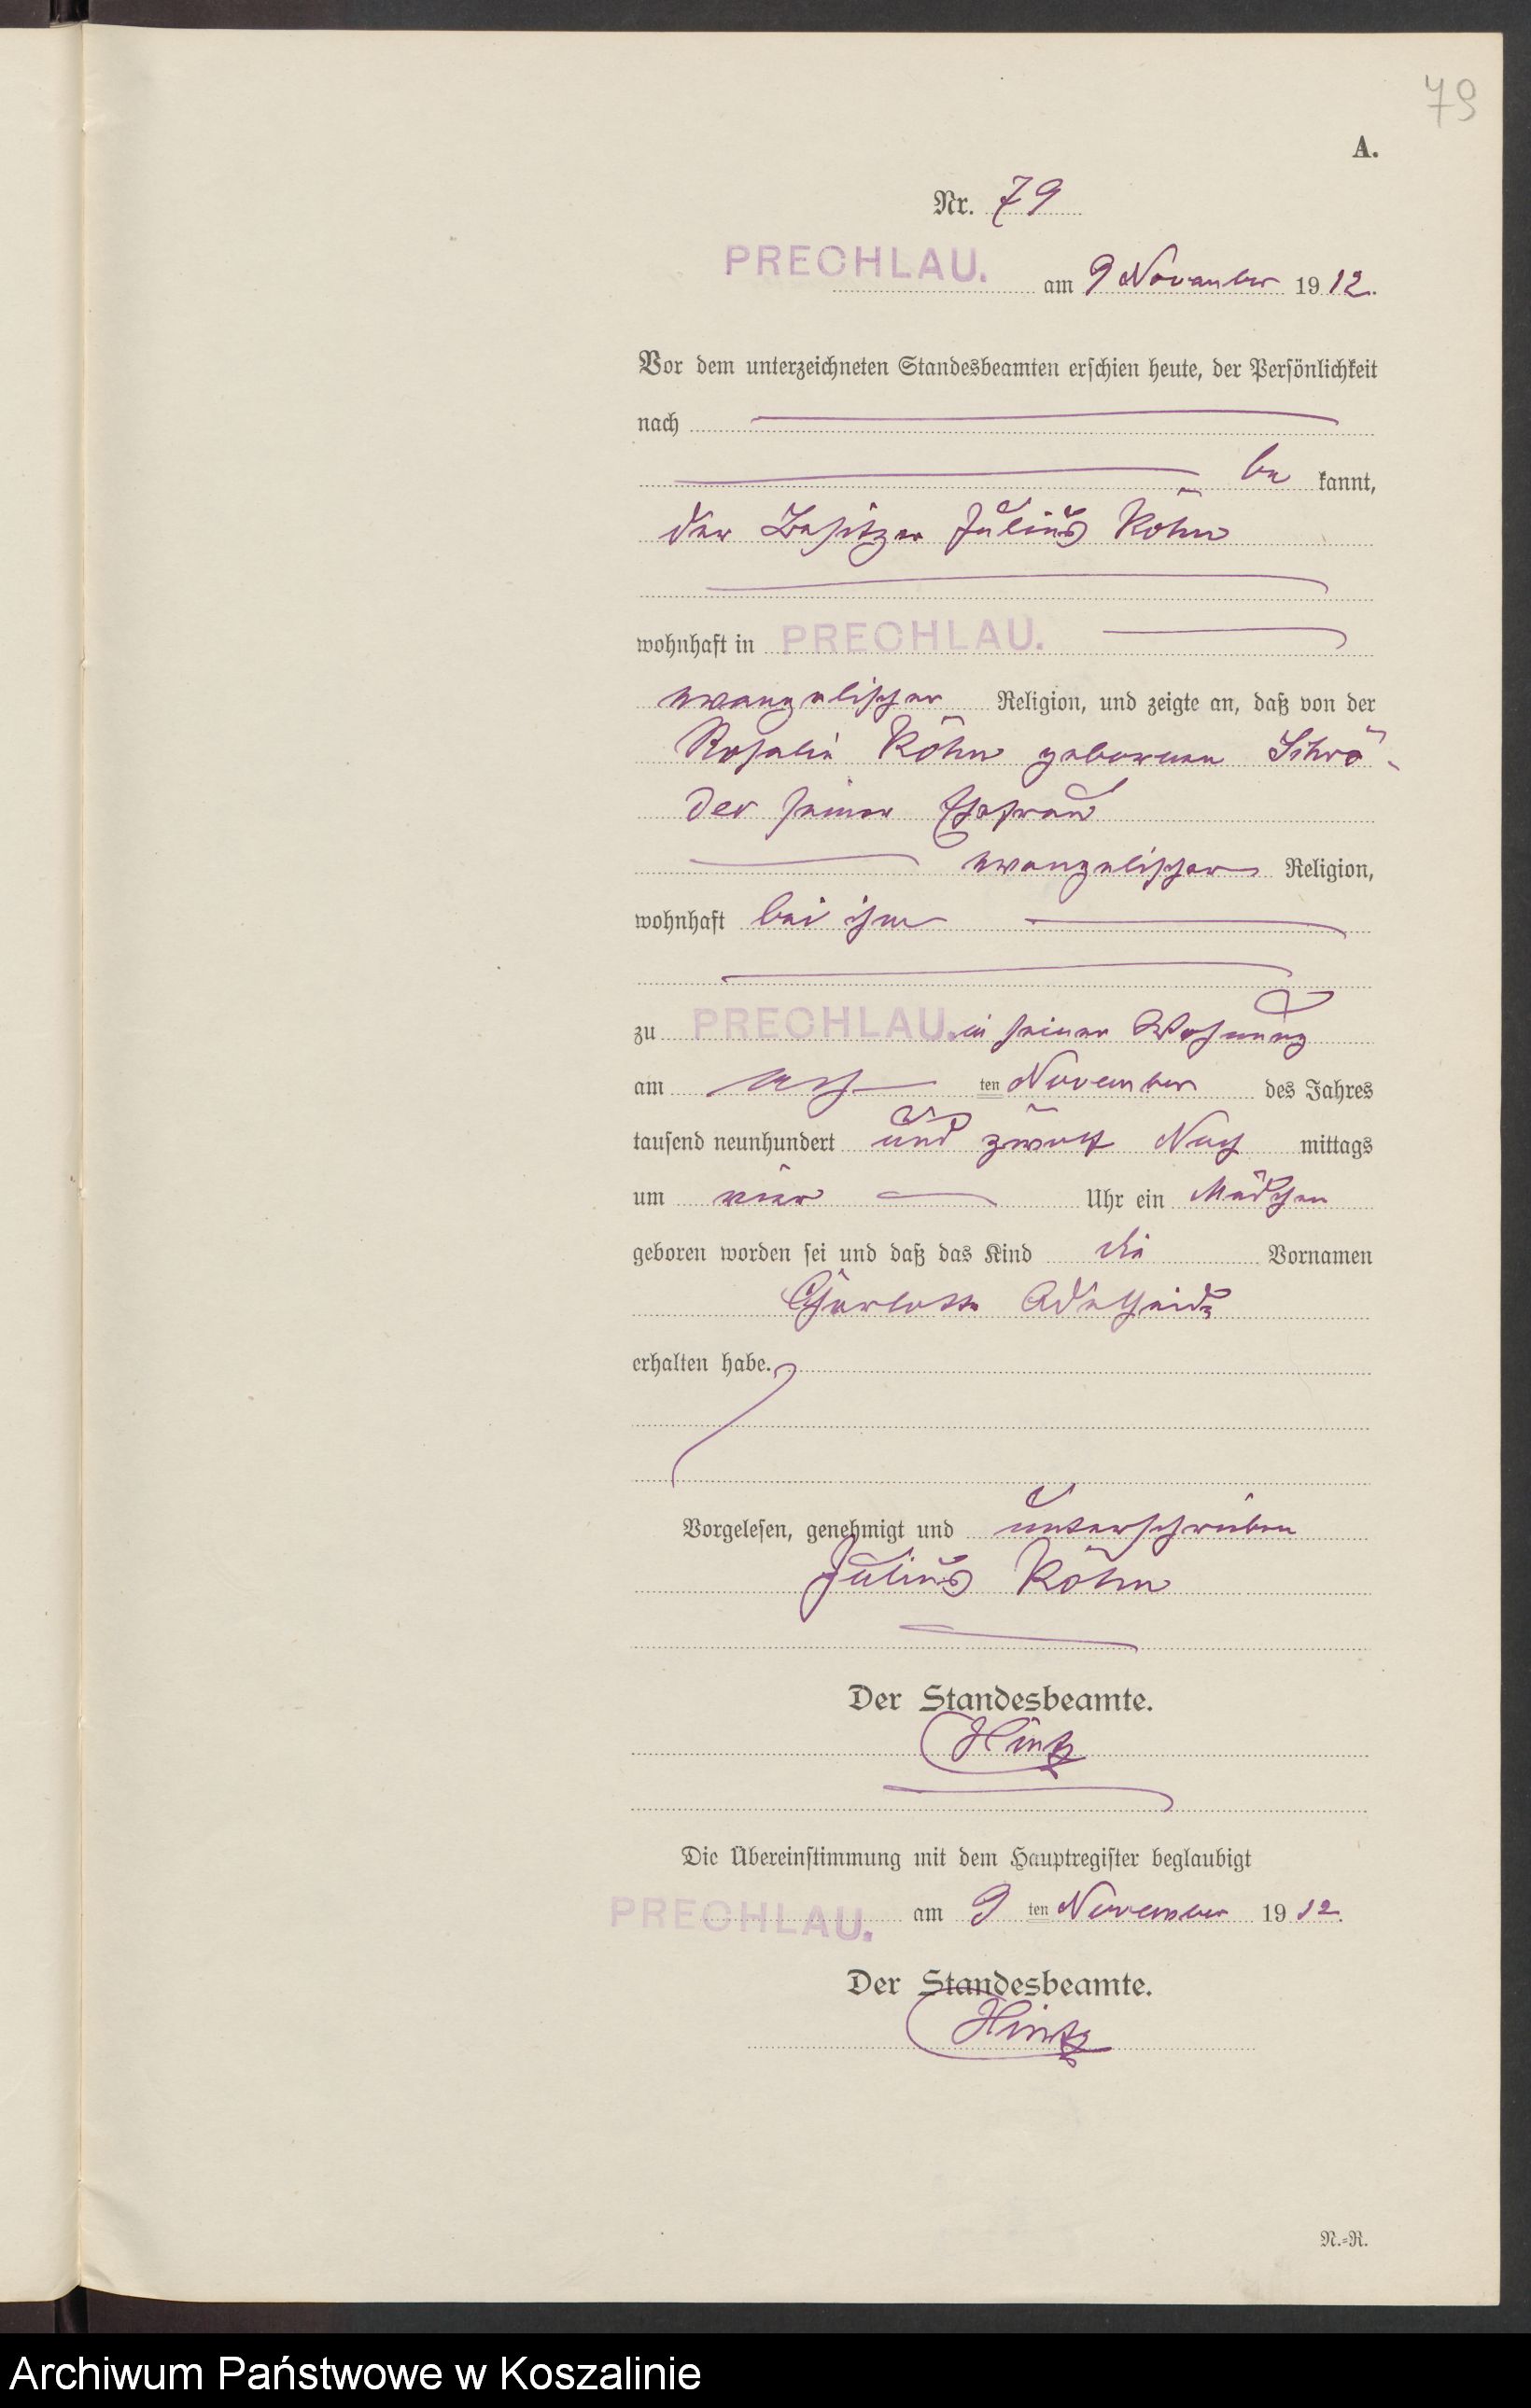 79
A.
Nr. 79
PRECHLAU. am 9 November 1912.
Vor dem unterzeichneten Standesbeamten erschien heute, der Persönlichkeit
nach
be kannt,
der Besitzer Julius Röhn
wohnhaft in PRECHLAU.
evangelischer Religion, und zeigte an, daß von der
Rosalie Röhn geborenen Schrö-
der seiner Ehefrau
evangelischer Religion,
wohnhaft bei ihm
zu PRECHLAU. in seiner Wohnung
am acht ten November des Jahres
tausend neunhundert und zwölf Nach mittags
um vier Uhr ein Mädchen
geboren worden sei und daß das Kind die Vornamen
Charlotte Adelheid
erhalten habe.
Vorgelesen, genehmigt und unterschrieben
Julius Röhn
Der Standesbeamte.
Hintz
Die Übereinstimmung mit dem Hauptregister beglaubigt
PRECHLAU. am 9 ten November 1912.
Der Standesbeamte.
Hintz
N.=R.
Archiwum Państwowe w Koszalinie